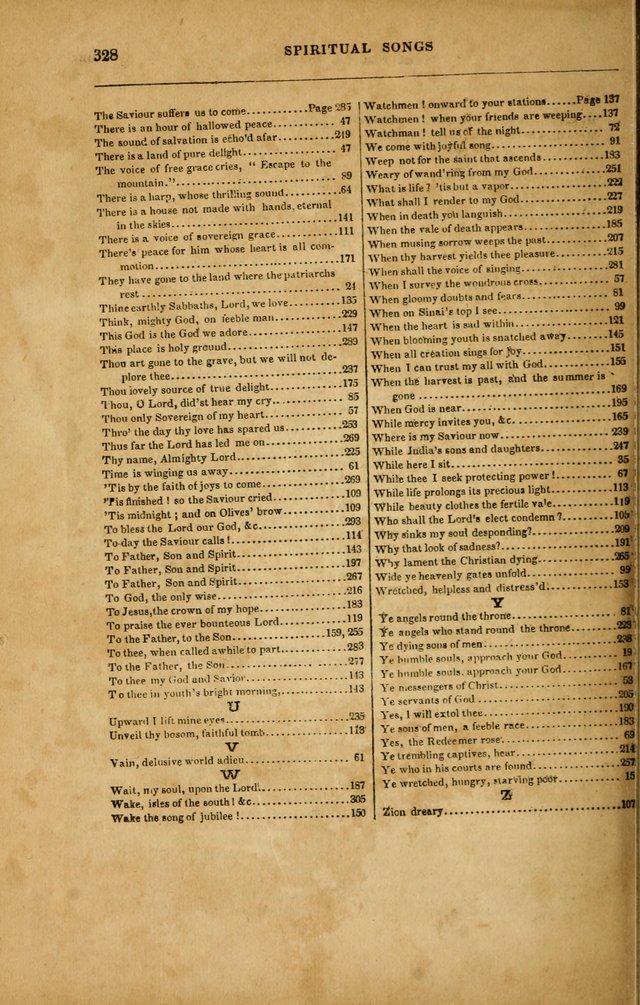 328
SPIRITUAL SONGS
The Saviour suffers us to come...........Page 285
There is an hour of hallowed peace............... 47
The sound of salvation is echo'd afar............219
There is a land of pure delight.................. 47
The voice of free grace cries, " Escape to the
mountain."............................ 89
There is a harp, whose thrilling sound...........64
There is a house not made with hands, eternal
in the skies............................141
There is a voice of sovereign grace..............111
There's peace for him whose heart is all com-
motion................................171
They have gone to the land where the patriarchs
rest .................................. 21
Thine earthly Sabbaths, Lord, we love............135
Think, mighty God, on feeble man.................229
This God is the God we adore.....................147
This place is holy ground........................289
Thou art gone to the grave, but we will not de-
plore thee............................237
Thou lovely source of true delight...............175
Thou, O Lord, did'st hear my cry................. 85
Thou only Sovereign of my heart.................. 57
Thro' the day thy love has spared us.............253
Thus far the Lord has led me on..................269
Thy name, Almighty Lord..........................225
Time is winging us away.......................... 61
'Tis by the faith of joys to come................269
'Tis finished ! so the Saviour cried.............109
'Tis midnight ; and on Olives' brow..............109
To bless the Lord our God, &c....................293
To-day the Saviour calls !.......................114
To Father, Son and Spirit........................143
To Father, Son and Spirit........................197
To Father, Son and Spirit........................267
To God, the only wise............................216
To Jesus,the crown of my hope....................183
To praise the ever bounteous Lord................119
To the Father, to the Son...................159, 255
To thee, when called awhile to part..............283
To the Father, the Son...........................277
To thee my God and Savior........................143
To thee in youth's bright morning,...............143
U
Upward I lift mine eyes..........................235
Unveil thy bosom, faithful tomb..................113
V
Vain, delusive world adieu....................... 61
W
Wait, my soul, upon the Lord.....................187
Wake, isles of the south ! &c....................305
Wake the song of jubilee !.......................150
Watchmen ! onward to your stations......Page 137
Watchmen ! when your friends are weeping....137
Watchman ! tell us of the night.................. 72
We come with joyful song......................... 91
Weep not for the saint that ascends..............183
Weary of wand'ring from my God...................251
What is life ? 'tis but a vapor..................221
What shall I render to my God....................227
When in death you languish.......................219
When the vale of death appears...................185
When musing sorrow weeps the past................207
When thy harvest yields thee pleasure............215
When shall the voice of singing..................281
When I survey the wondrous cross................. 57
When gloomy doubts and fears..................... 81
When on Sinai's top I see........................ 99
When the heart is sad within.....................121
When blooming youth is snatched away.............145
When all creation sings for joy..................151
When I can trust my all with God.................155
When the harvest is past, and the summer is
gone ..................................169
When God is near.................................195
While mercy invites you, &c......................165
Where is my Saviour now..........................239
While India's sons and daughters.................247
While here I sit................................. 35
While thee I seek protecting power !............. 67
While life prolongs its precious light...........113
While beauty clothes the fertile vale............119
Who shall the Lord's elect condemn ?.............105
Why sinks my soul desponding?....................209
Why that look of sadness?........................191
Why lament the Christian dying...................265
Wide ye heavenly gates unfold.................... 99
Wretched, helpless and distress'd................153
Y
Ye angels round the throne....................... 81
Ye angels who stand round the throne.............223
Ye dying sons of men.............................238
Ye humble souls, approach your God............... 19
Ye humble souls. approach your God...............167
Ye messengers of Christ.......................... 53
Ye servants of God ..............................205
Yes, I will extol thee...........................190
Ye sons of men, a feeble race....................183
Yes, the Redeemer rose........................... 69
Ye trembling captives, hear......................214
Ye who in his courts are found...................257
Ye wretched, hungry, starving poor............... 15
Z
Zion dreary......................................107